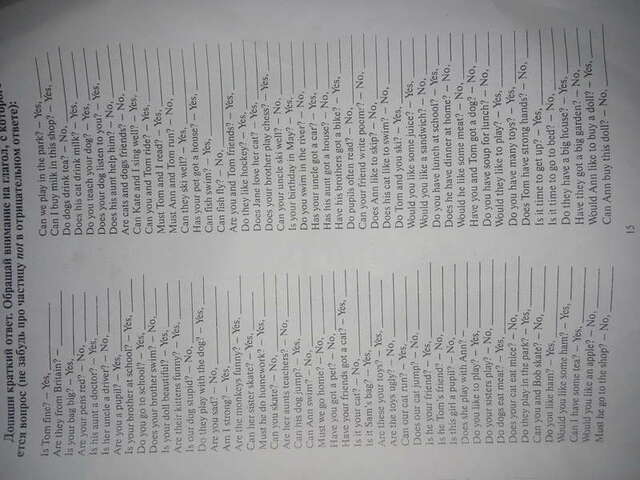 Допиши краткий ответ. Обращай внимание на глагол, с
ется вопрос (не забудь про частицу not в отрицательном ответе):
Is Tom fine? – Yes,
Are they from Britain? –
Is your dog big? – Yes,
Are your pens red? – No,
Is his aunt a doctor? – Yes,
Is her uncle a driver? – No,
Are you a pupil? – Yes,
Is your brother at school? – Yes,
Do you go to school? – Yes,
Does your mother swim? – No,
Is your doll beautiful? – Yes,
Are their kittens funny? – Yes,
Is our dog stupid? – No,
Do they play with the dog? – Yes,
Are you sad? – No,
Am I strong? – Yes,
Are the children funny? – Yes,
Can her sister skate? – Yes,
Must he do homework? – Yes,
Can you skate? – No,
Are her aunts teachers? – No,
Can his dog jump? – Yes,
Can Ann see you? – No,
Must we go home? – No,
Have you got a pet? – No,
Have your friends got a cat? – Yes,
Is it your cat? – No,
Is it Sam's bag? – Yes,
Are these your toys? – Yes,
Are the toys ugly? – No,
Can our cat run? – Yes,
Does our cat jump? – No,
Is he your friend? – Yes,
Is he Tom's friend? – No,
Is this girl a pupil? – No,
Does she play with Ann? –
Do you like to play? – Yes,
Do your sisters play? – No,
Do dogs eat meat? – Yes,
Does your cat eat mice? – No,
Do they play in the park? – Yes,
Can you and Bob skate? – No,
Do you like ham? – Yes,
Would you like some ham? – Yes,
Can I have some tea? – Yes,
Would you like an apple? – No,
Must he go to the shop? – No,
Can we play in the park? – Yes,
Can I buy milk in this shop? – Yes,
Do dogs drink tea? – No,
Does his cat drink milk? – Yes,
Do you teach your dog? – Yes,
Does your dog listen to you? – Yes,
Does his sister help him? – No,
Are cats and dogs friends? – Yes,
Can Kate and I sing well? – Yes,
Can you and Tom ride? – Yes,
Must Tom and I read? – Yes,
Must Ann and Tom run? – No,
Can they ski well? – Yes,
Has your pet got a house? – Yes,
Can fish swim? – Yes,
Can fish fly? – No,
Are you and Tom friends? – Yes,
Do they like hockey? – Yes,
Does Jane love her cat? – Yes,
Does your brother play others? – Yes,
Can your uncle ski well? – No,
Is your birthday in May? – Yes,
Do you swim in the river? – No,
Has your uncle got a car? – Yes,
Has his aunt got a house? – No,
Have his brothers got a bike? – Yes,
Do pupils often read? – Yes,
Can your friend write poems? – No,
Does Ann like to skip? – No,
Does his cat like to swim? – No,
Do Tom and you ski? – Yes,
Would you like some juice? – Yes,
Would you like a sandwich? – No,
Do you have lunch at school? – Yes,
Does he have dinner at home? – No,
Would he like some meat? – No,
Have you and Tom got a dog? – No,
Do you have soup for lunch? – No,
Would they like to play? – Yes,
Do you have many toys? – Yes,
Does Tom have strong hands? – No,
Is it time to get up? – Yes,
Is it time to go to bed? – Yes,
Do they have a big house? – Yes,
Have they got a big garden? – No,
Would Ann like to buy a doll? – Yes,
Can Ann buy this doll? – No,
15